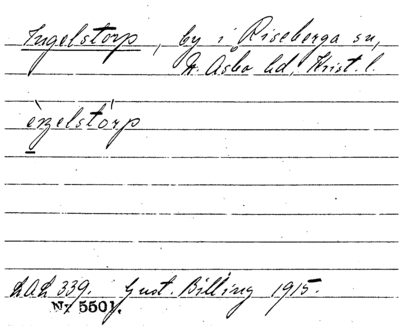 Ingelstorp, by i Riseberga sn,
N. Åsbo hd, Krist. l.
èŋelstòrp
LAL 339. Gust. Billing 1915.
Nr 5501.